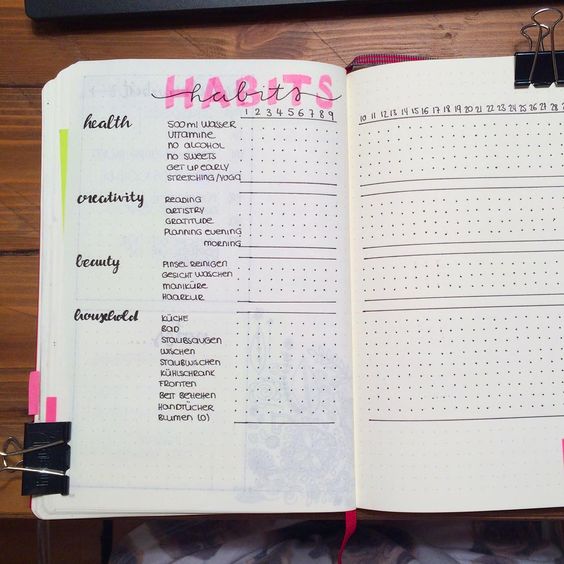 HABITS
habits
1 2 3 4 5 6 7 8 9
10 11 12 13 14 15 16 17 18 19 20 21 22 23 24 25 26 27 28
health
500ml WASSER
VITAMINE
NO ALCOHOL
NO SWEETS
GET UP EARLY
STRETCHING/YOGA
creativity
READING
ARTISTRY
GRATITUDE
PLANNING EVENING
MORNING
beauty
PINSEL REINIGEN
GESICHT WASCHEN
MANIKÜRE
HAARKUR
household
KÜCHE
BAD
STAUBSAUGEN
WASCHEN
STAUBWISCHEN
KÜHLSCHRANK
FRONTEN
BETT BEZIEHEN
HANDTÜCHER
BLUMEN (O)